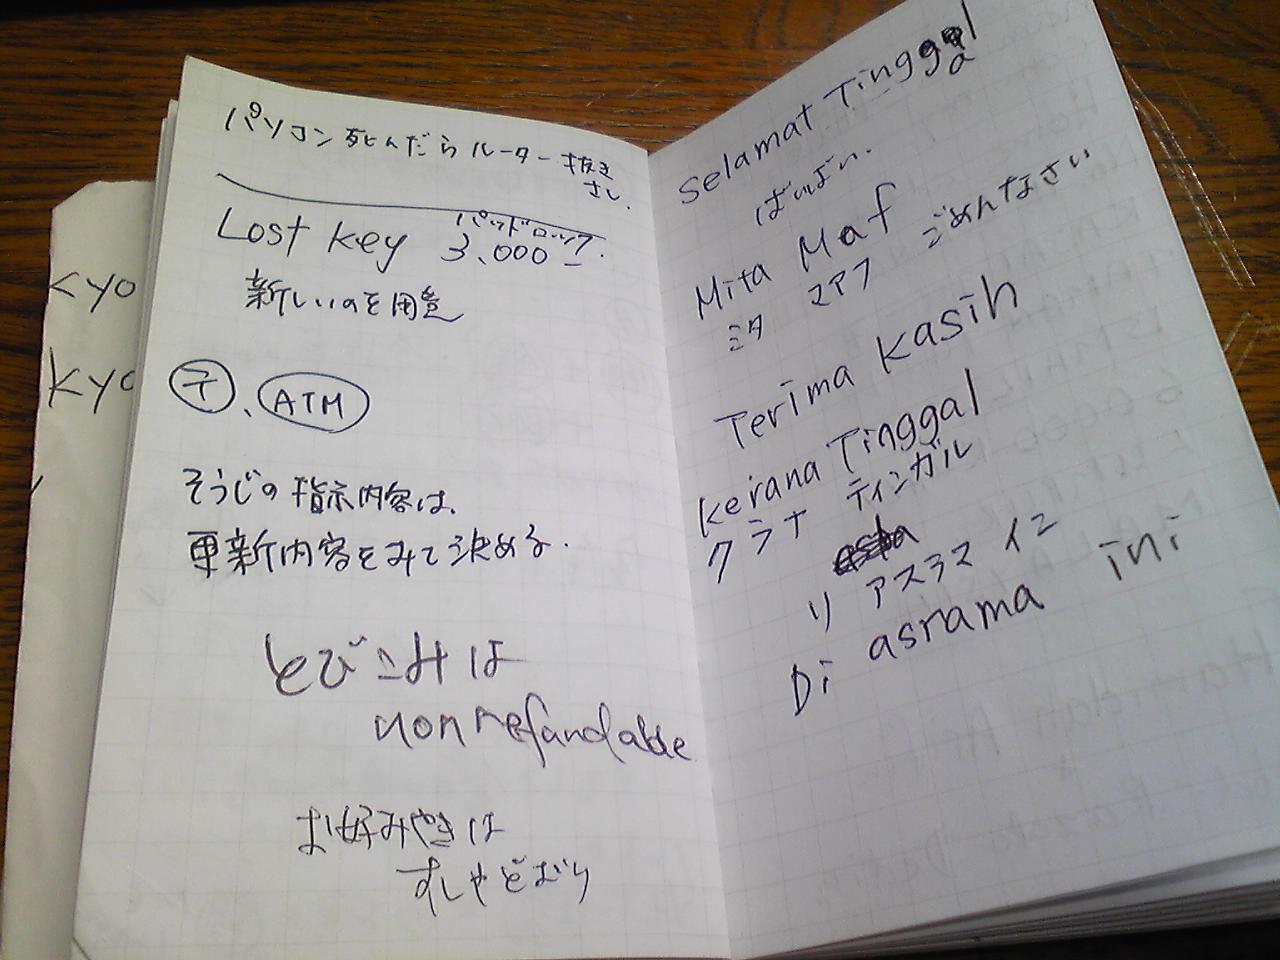 パソコン死んだらルーター抜き
さし.
Lost key パッドロック
3,000-.
新しいのを用意
〒、ATM
そうじの指示内容は、
更新内容をみて決める.
とびこみは
nonrefandable
お好みやきは
すしやどおり
Selamat Tinggal
a
ばいばい.
Mita Maf ごめんなさい
ミタ マアフ
Terima kasih
kerana Tinggal
クラナ ティンガル
リ アスラマ イニ
Di asrama ini
kyo
kyo